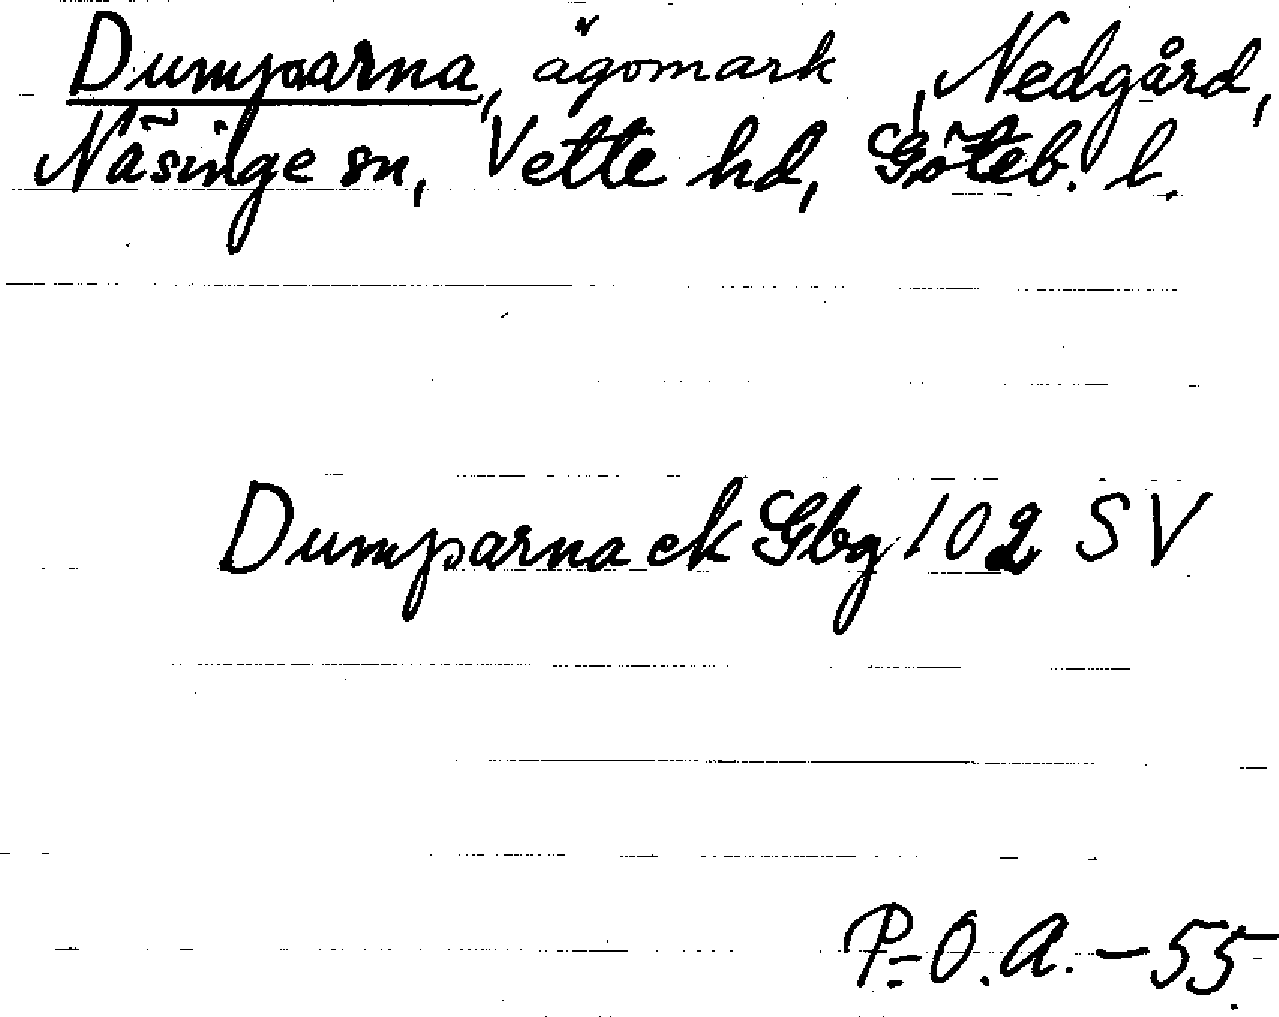 Dumparna, ägomark, Nedgård,
Näsinge sn, Vette hd, Göteb. l.
Dumparna ek Gbg 102 SV
P-O.A. -55.